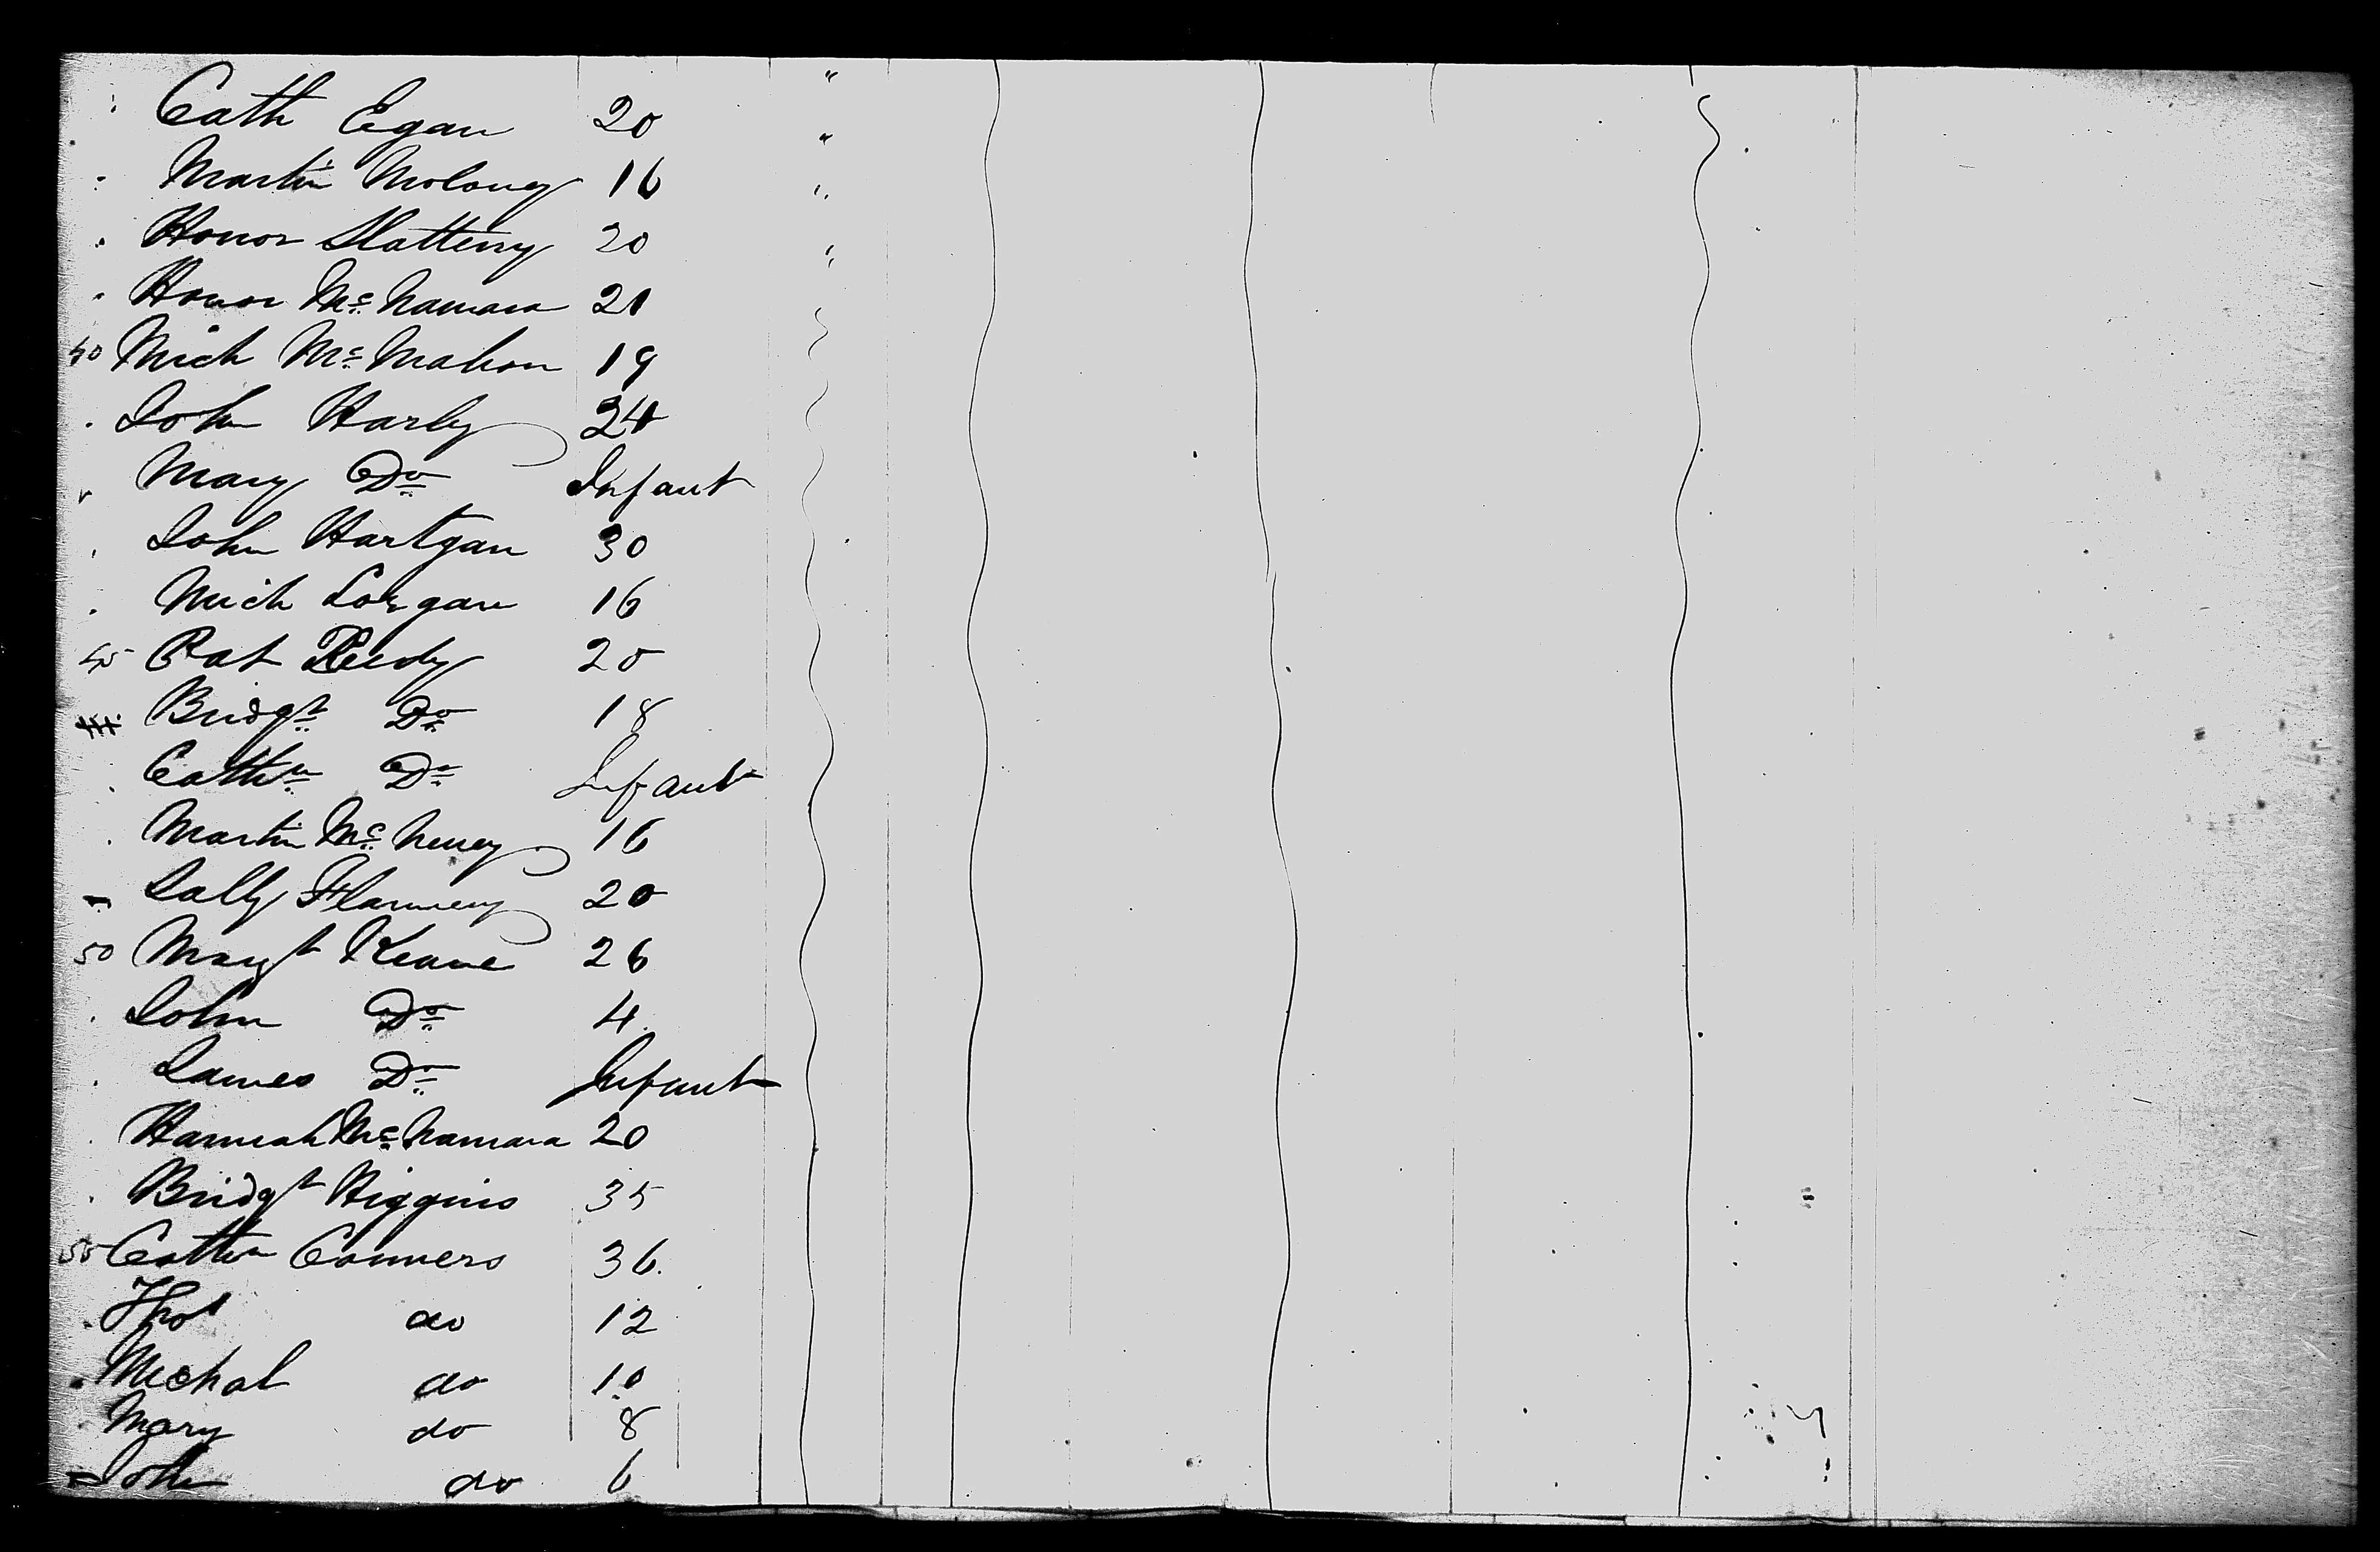 Cath Egan 20 "
Martin Moloney 16 "
Honor Slattery 20 "
Honor Mc Namara 21 "
40 Mich Mc Mahon 19
John Harly 24
Mary Do Infant
John Hartgan 30
Mich Lorgan 16
45 Pat Reedy 20
Bridgt Do 18
Cathn Do Infant
Martin Mc Neney 16
Sally Flannery 20
50 Margt Keane 26
John Do 4
James Do Infant
Hannah Mc Namara 20
Bridgt Higgins 35
55 Cathn Conners 36
Thos do 12
Michal do 10
Mary do 8
John do 6